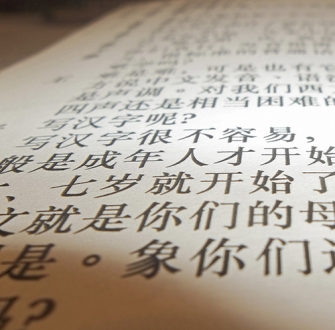 难是难，可是也有它
方说中文发音、语
是声调。对我们西
四声还是相当困难的
写汉字呢？
写汉字很不容易，
般是成年人才开始
七岁就开始了
文就是你们的母
是。象你们这
吗？